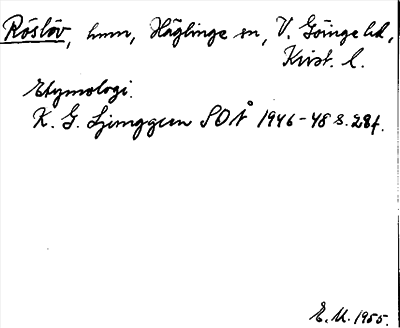 Röslöv, hmn, Häglinge sn, V. Göinge hd,
Krist. l.
Etymologi.
K. G. Ljunggren SOÅ 1946-48 s. 28f.
E. U. 1955.